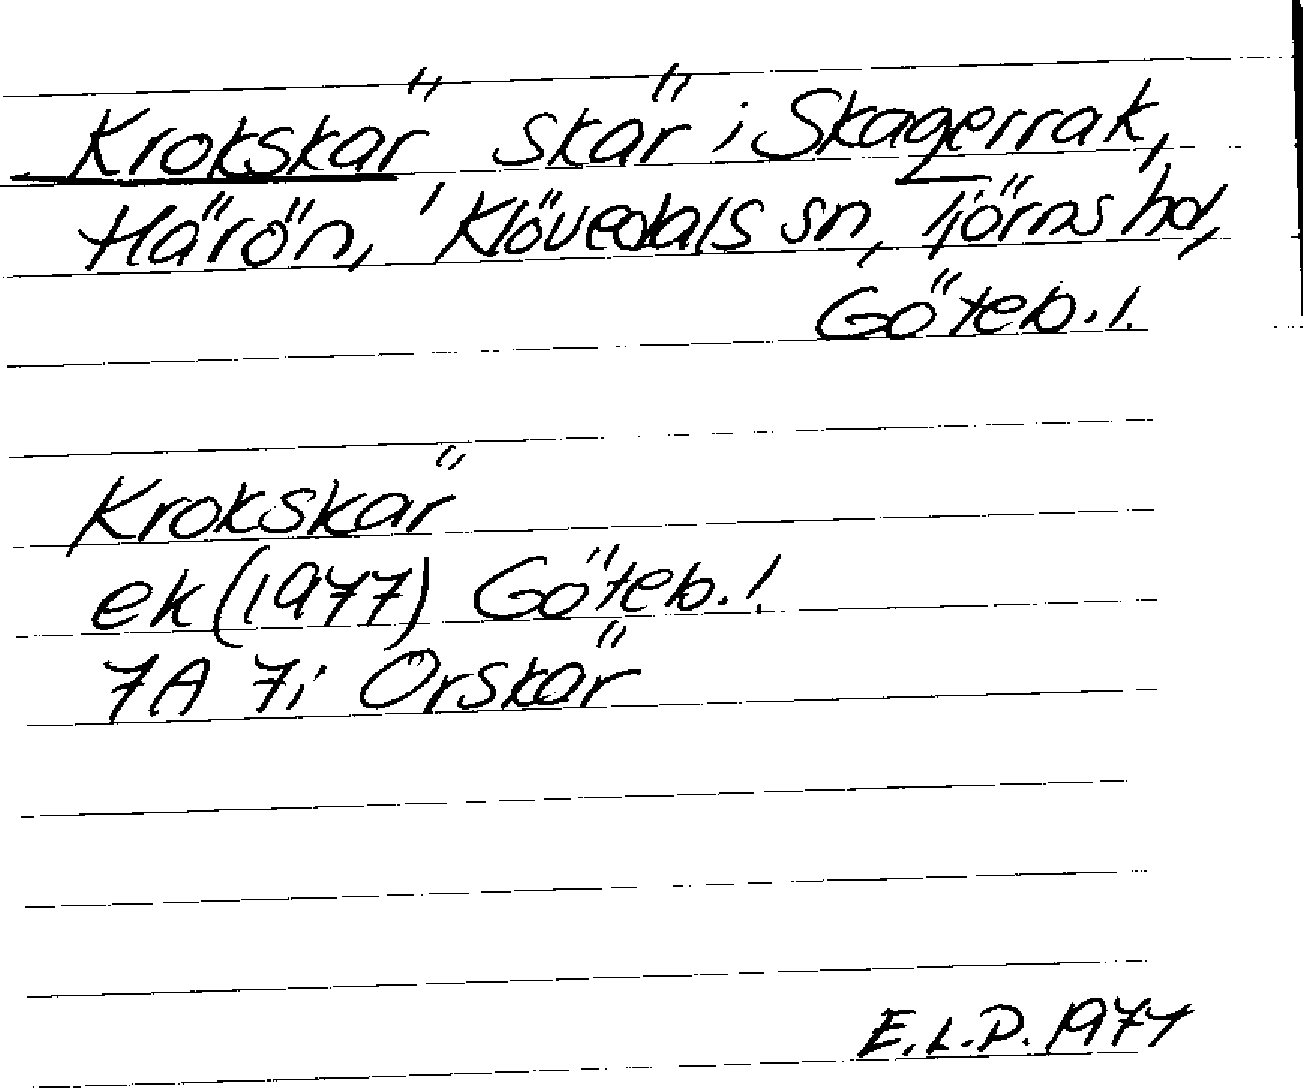 Krokskär skär i Skagerrak,
Härön, Klövedals sn, Tjörns hd,
Göteb. l.
Krokskär
ek (1977) Göteb. l.
7A 7i Örskär
E.L.P. 1977